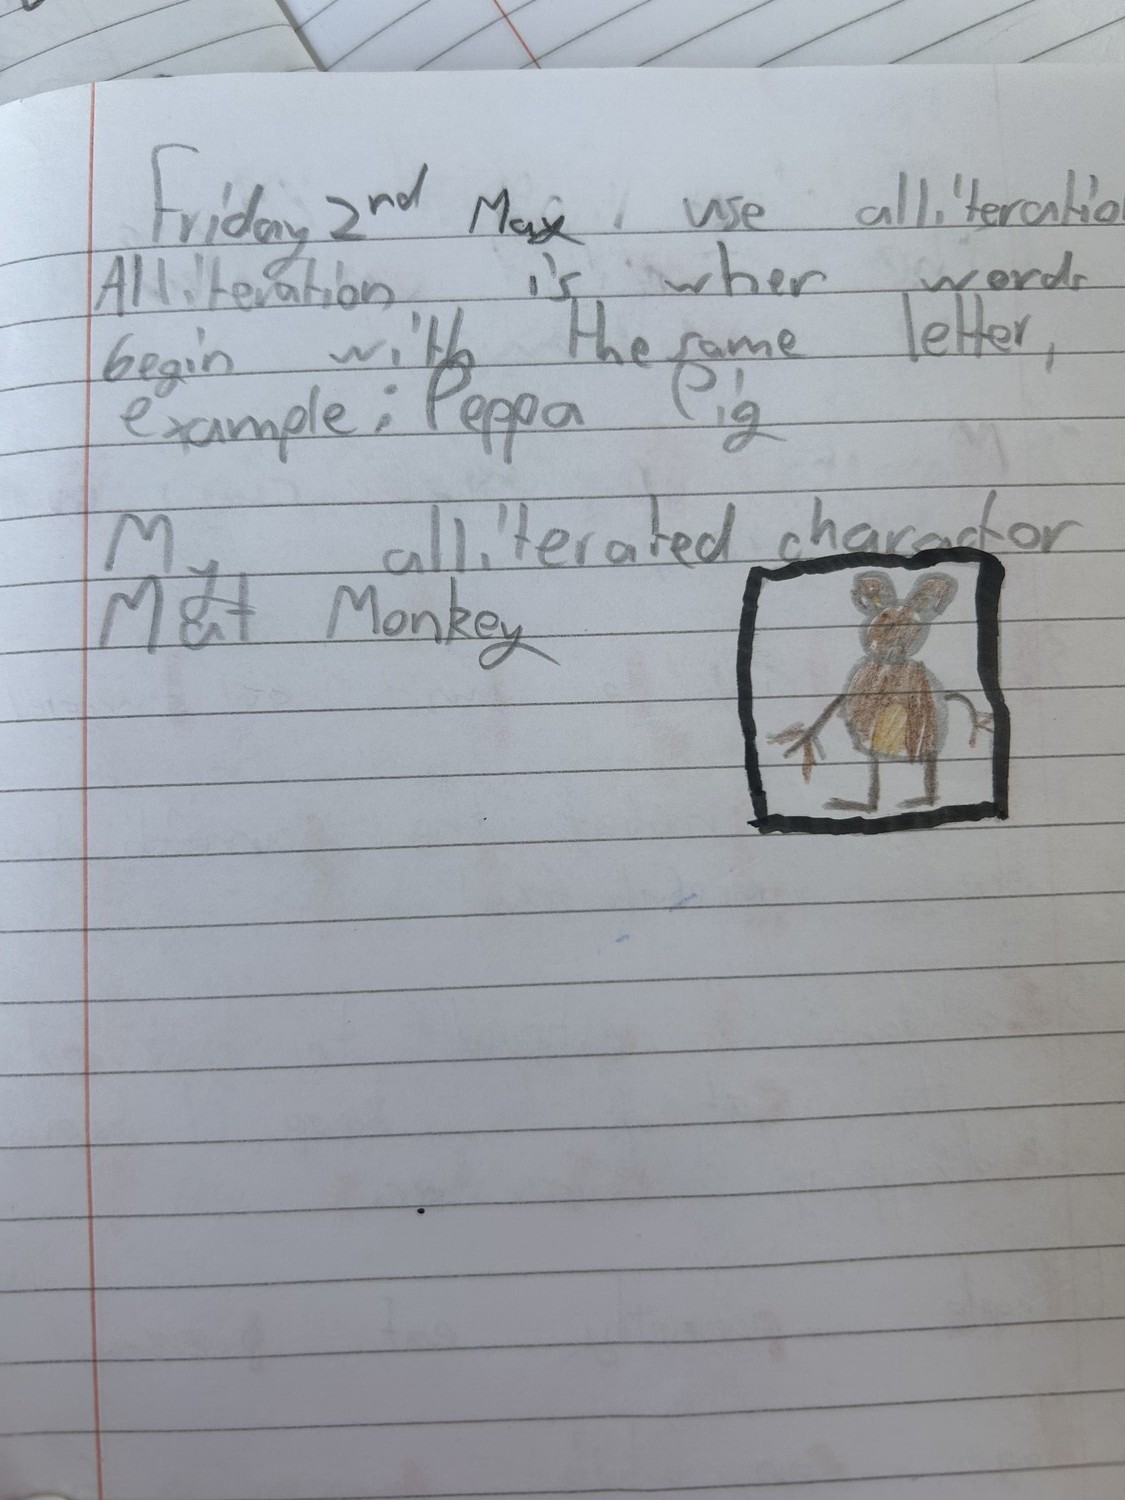 Friday 2nd Max use alliteratio
Alliteration is wher words
begin with the same letter,
example: Peppa Pig
My alliterated charactor
Mat Monkey